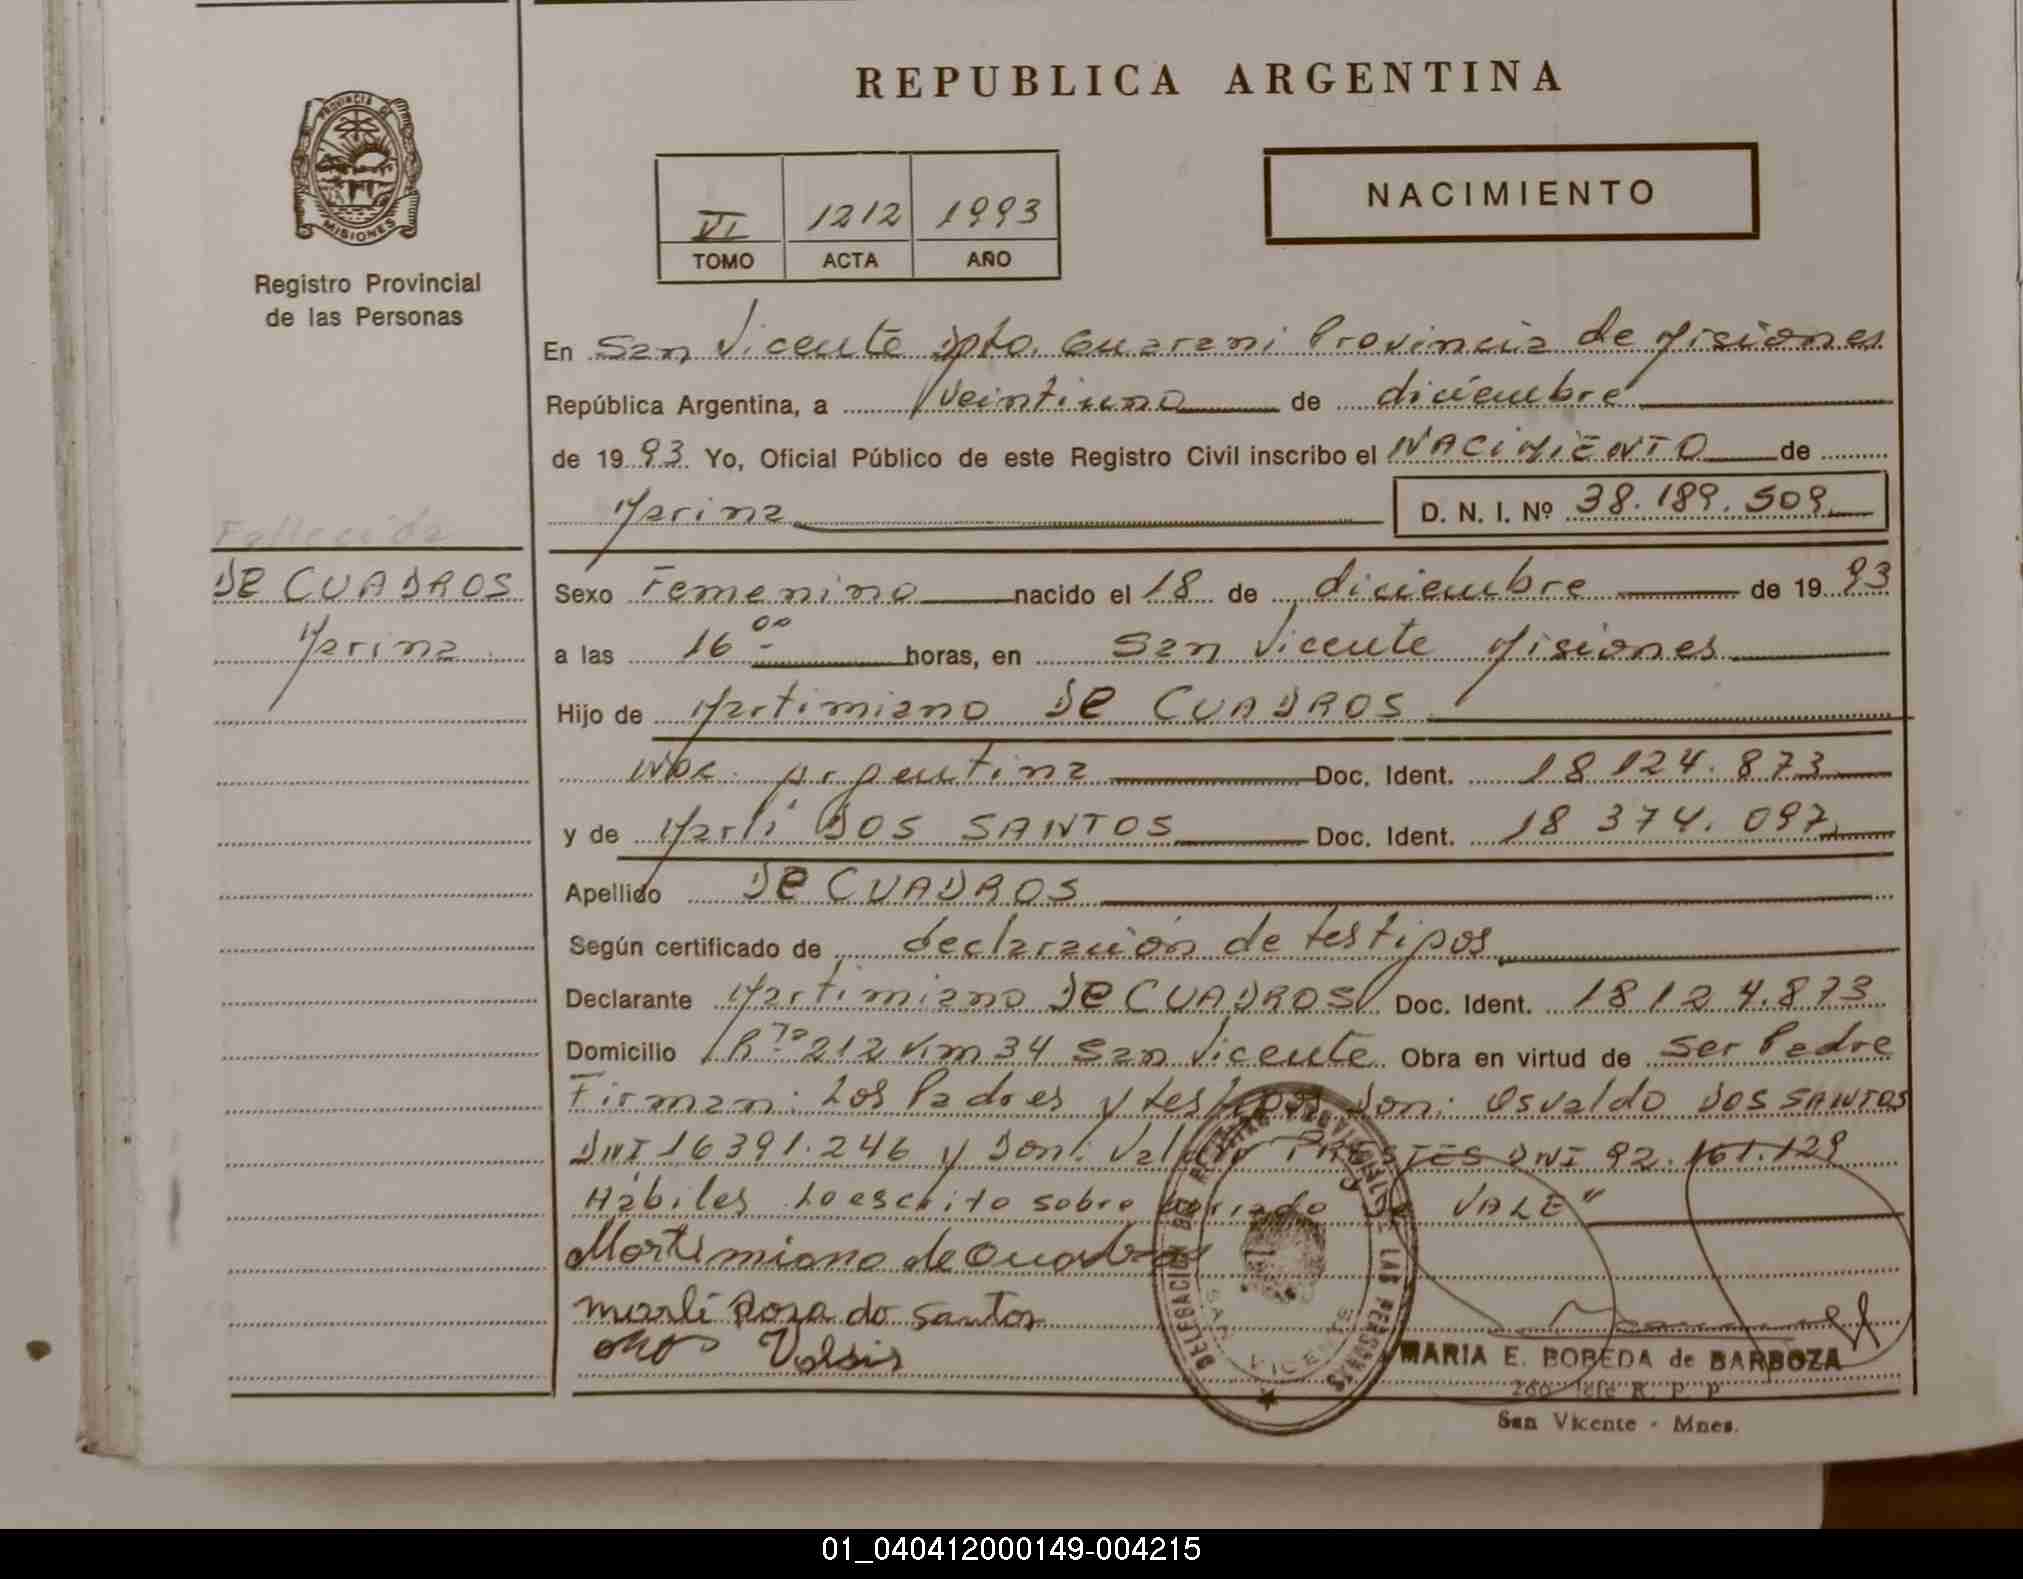 REPUBLICA ARGENTINA
PROVINCIA DE MISIONES
Registro Provincial
de las Personas
VI 1212 1993
TOMO ACTA AÑO
NACIMIENTO
En San Vicente Dpto. Guarani Provincia de Misiones
República Argentina, a Veintiuno de diciembre
de 1993. Yo, Oficial Público de este Registro Civil inscribo el NACIMIENTO de
Marina D. N. I. Nº 38.189.509
Fallecida
DE CUADROS
Marina
Sexo Femenino nacido el 18 de diciembre de 1993
a las 16 00 horas, en San Vicente Misiones
Hijo de Martimiano DE CUADROS
Nac. Argentina Doc. Ident. 18 124.873
y de Marli DOS SANTOS Doc. Ident. 18 374.097
Apellido DE CUADROS
Según certificado de declaración de testigos
Declarante Martimiano DE CUADROS Doc. Ident. 18124.873
Domicilio R 212 Km 34 San Vicente Obra en virtud de ser Padre
Firman: Los Padres y testigos Don: Osvaldo DOS SANTOS
DNI 16391.246 y Don: PRESTES DNI 92.161.129
Hábiles Lo escrito sobre borrado VALE"
Martimiano de Cuadros
marli Roza do Santos
MARIA E. BOBEDA de BARBOZA
2do Jefe R. P. P
San Vicente - Mnes.
DELEGACION DE REGISTRO PROVINCIAL DE LAS PERSONAS
SAN VICENTE
01_040412000149-004215